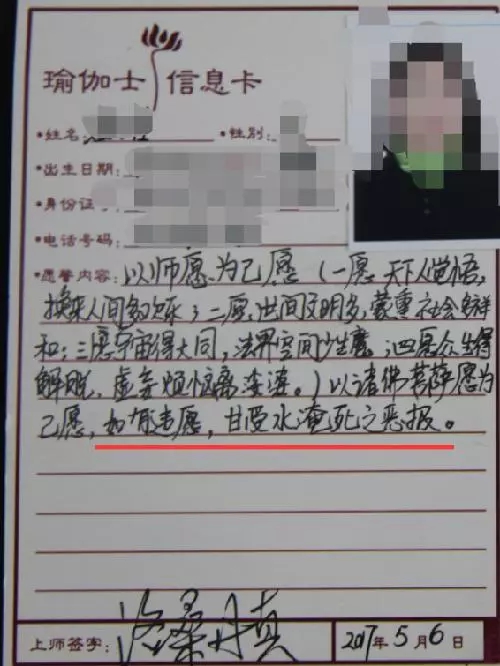 瑜伽士 信息卡
•姓名: •性别:
•出生日期:
•身份证
•电话号码:
•愿誓内容: 以师愿为己愿（一愿天下人觉悟,
换来人间多欢乐; 二愿世间文明多, 蒙熏社会与祥
和; 三愿宇宙得大同, 法界空间少生魔; 四愿众生得
解脱, 虚妄烦恼离娑婆。）以诸佛菩萨愿为
己愿, 如有违愿, 甘受水淹死之恶报。
上师签字: 2017年5月6日